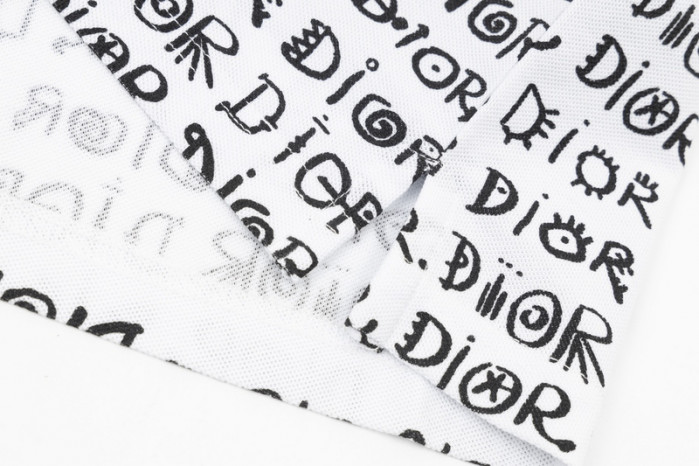 DIOR
DIOR
DIOR
DIOR
DIOR
DIOR
DIOR
DIOR
DIOR
DIOR
DIOR
DIOR
DIOR
DIOR